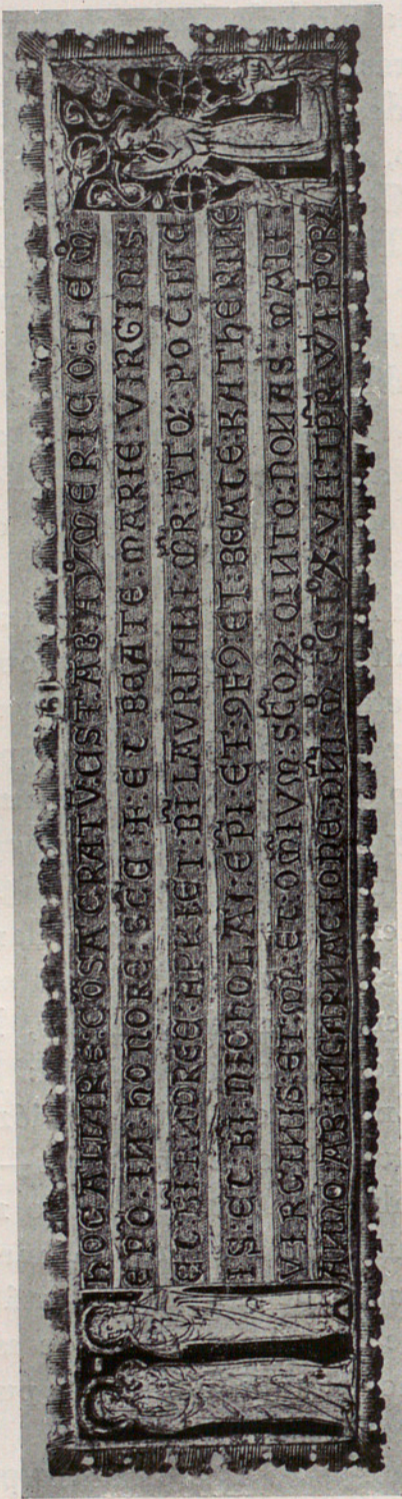 HOC ALTARE : CŌSACRATV̄ : EST AB AYMERICO : LEM̄ :
EPŌ : IN HONORE : SCĒ : ✝ : ET BEATE MARIE : VIRGINIS
ET BI ANDREE : APLI ET : BI LAVRIANI : MR̄ : ATQ̄ : POTINE
IS : ET BI NICHOLAI : EPI ET : 9F9 ET : BEATE KATHERINE
VIRGINIS : ET : MR̄ : ET OMĪVM SCŌꝜ : QINTO : NONAS : MAII
ANNO AB INCARNACIONE DNĪ M CC LXVII